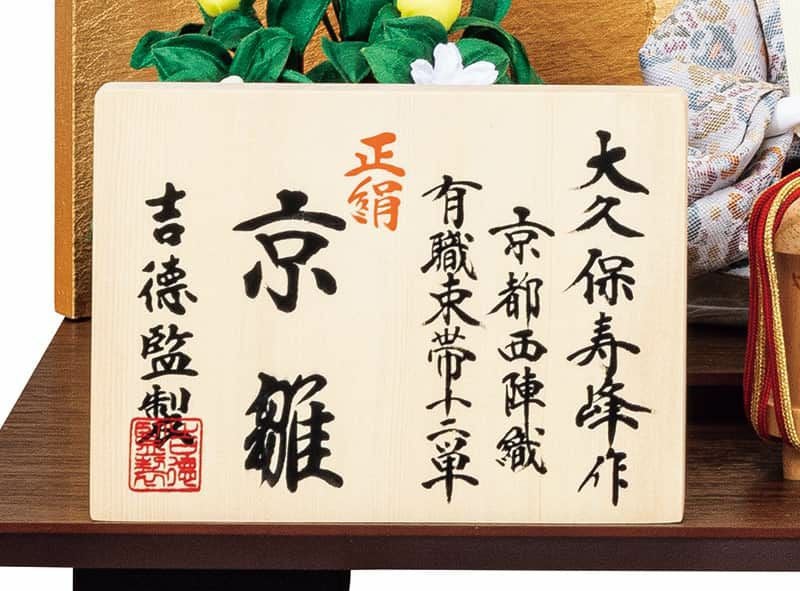 大久保寿峰作
京都西陣織
有職束帯十二単
正絹
京雛
吉德監製